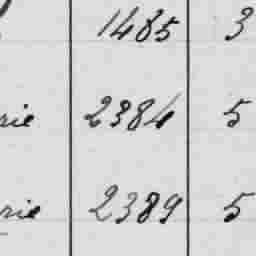 1485 3
rie 2384 5
rie 2389 5